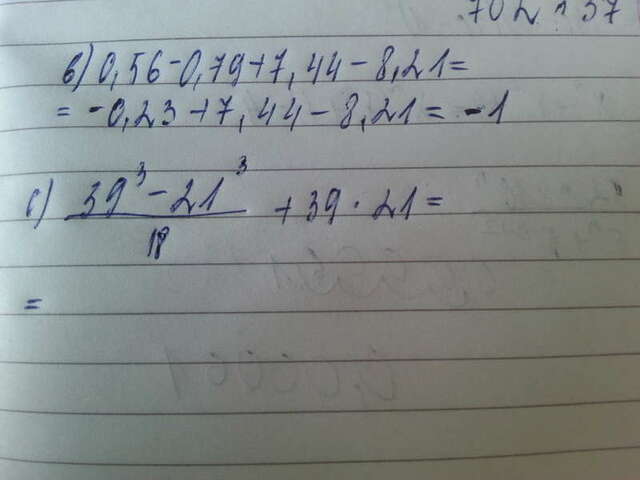 в) 0,56-0,79+7,44-8,21=
= -0,23+7,44-8,21= -1
с) 39³-21³
18
+39·21=
=